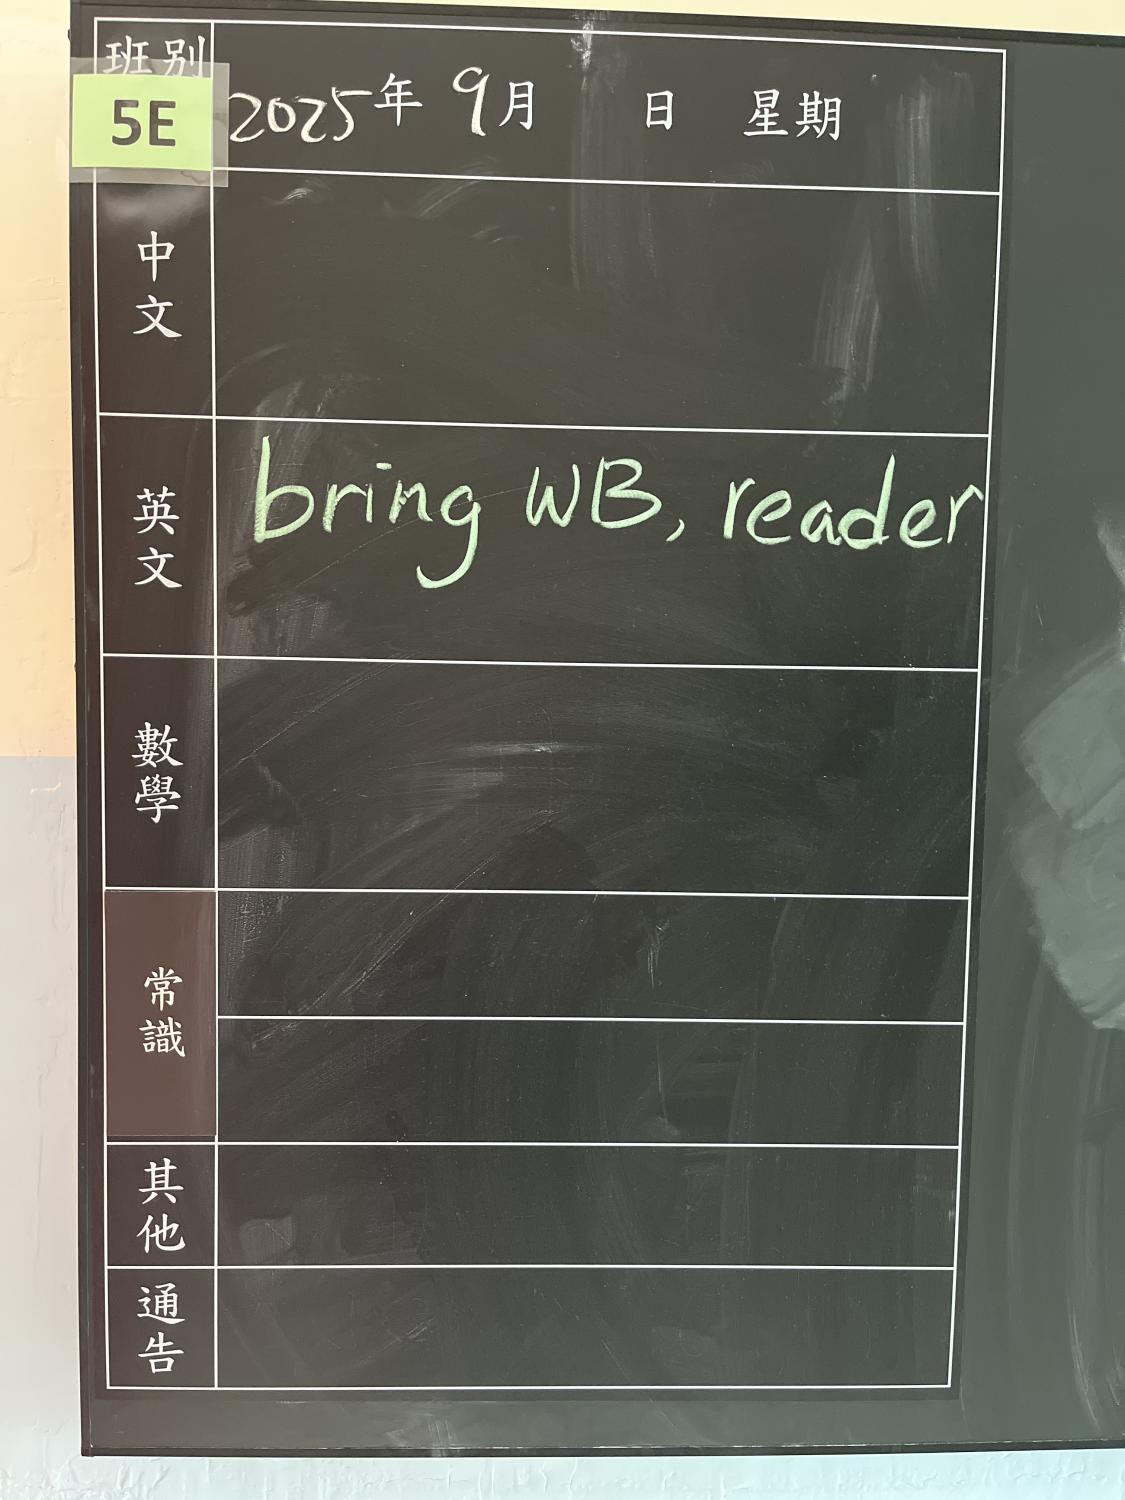 班別
5E
2025年 9月 日 星期
中文
bring WB, reader
英文
數學
常識
其他
通告